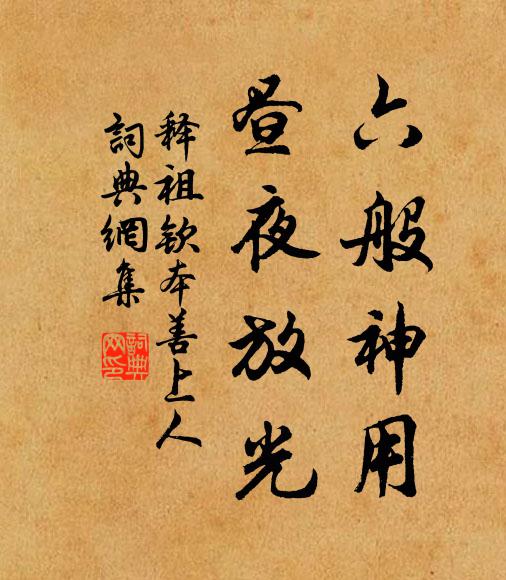 六般神用
昼夜放光
释祖钦本善上人
詞典網集
詞典网印